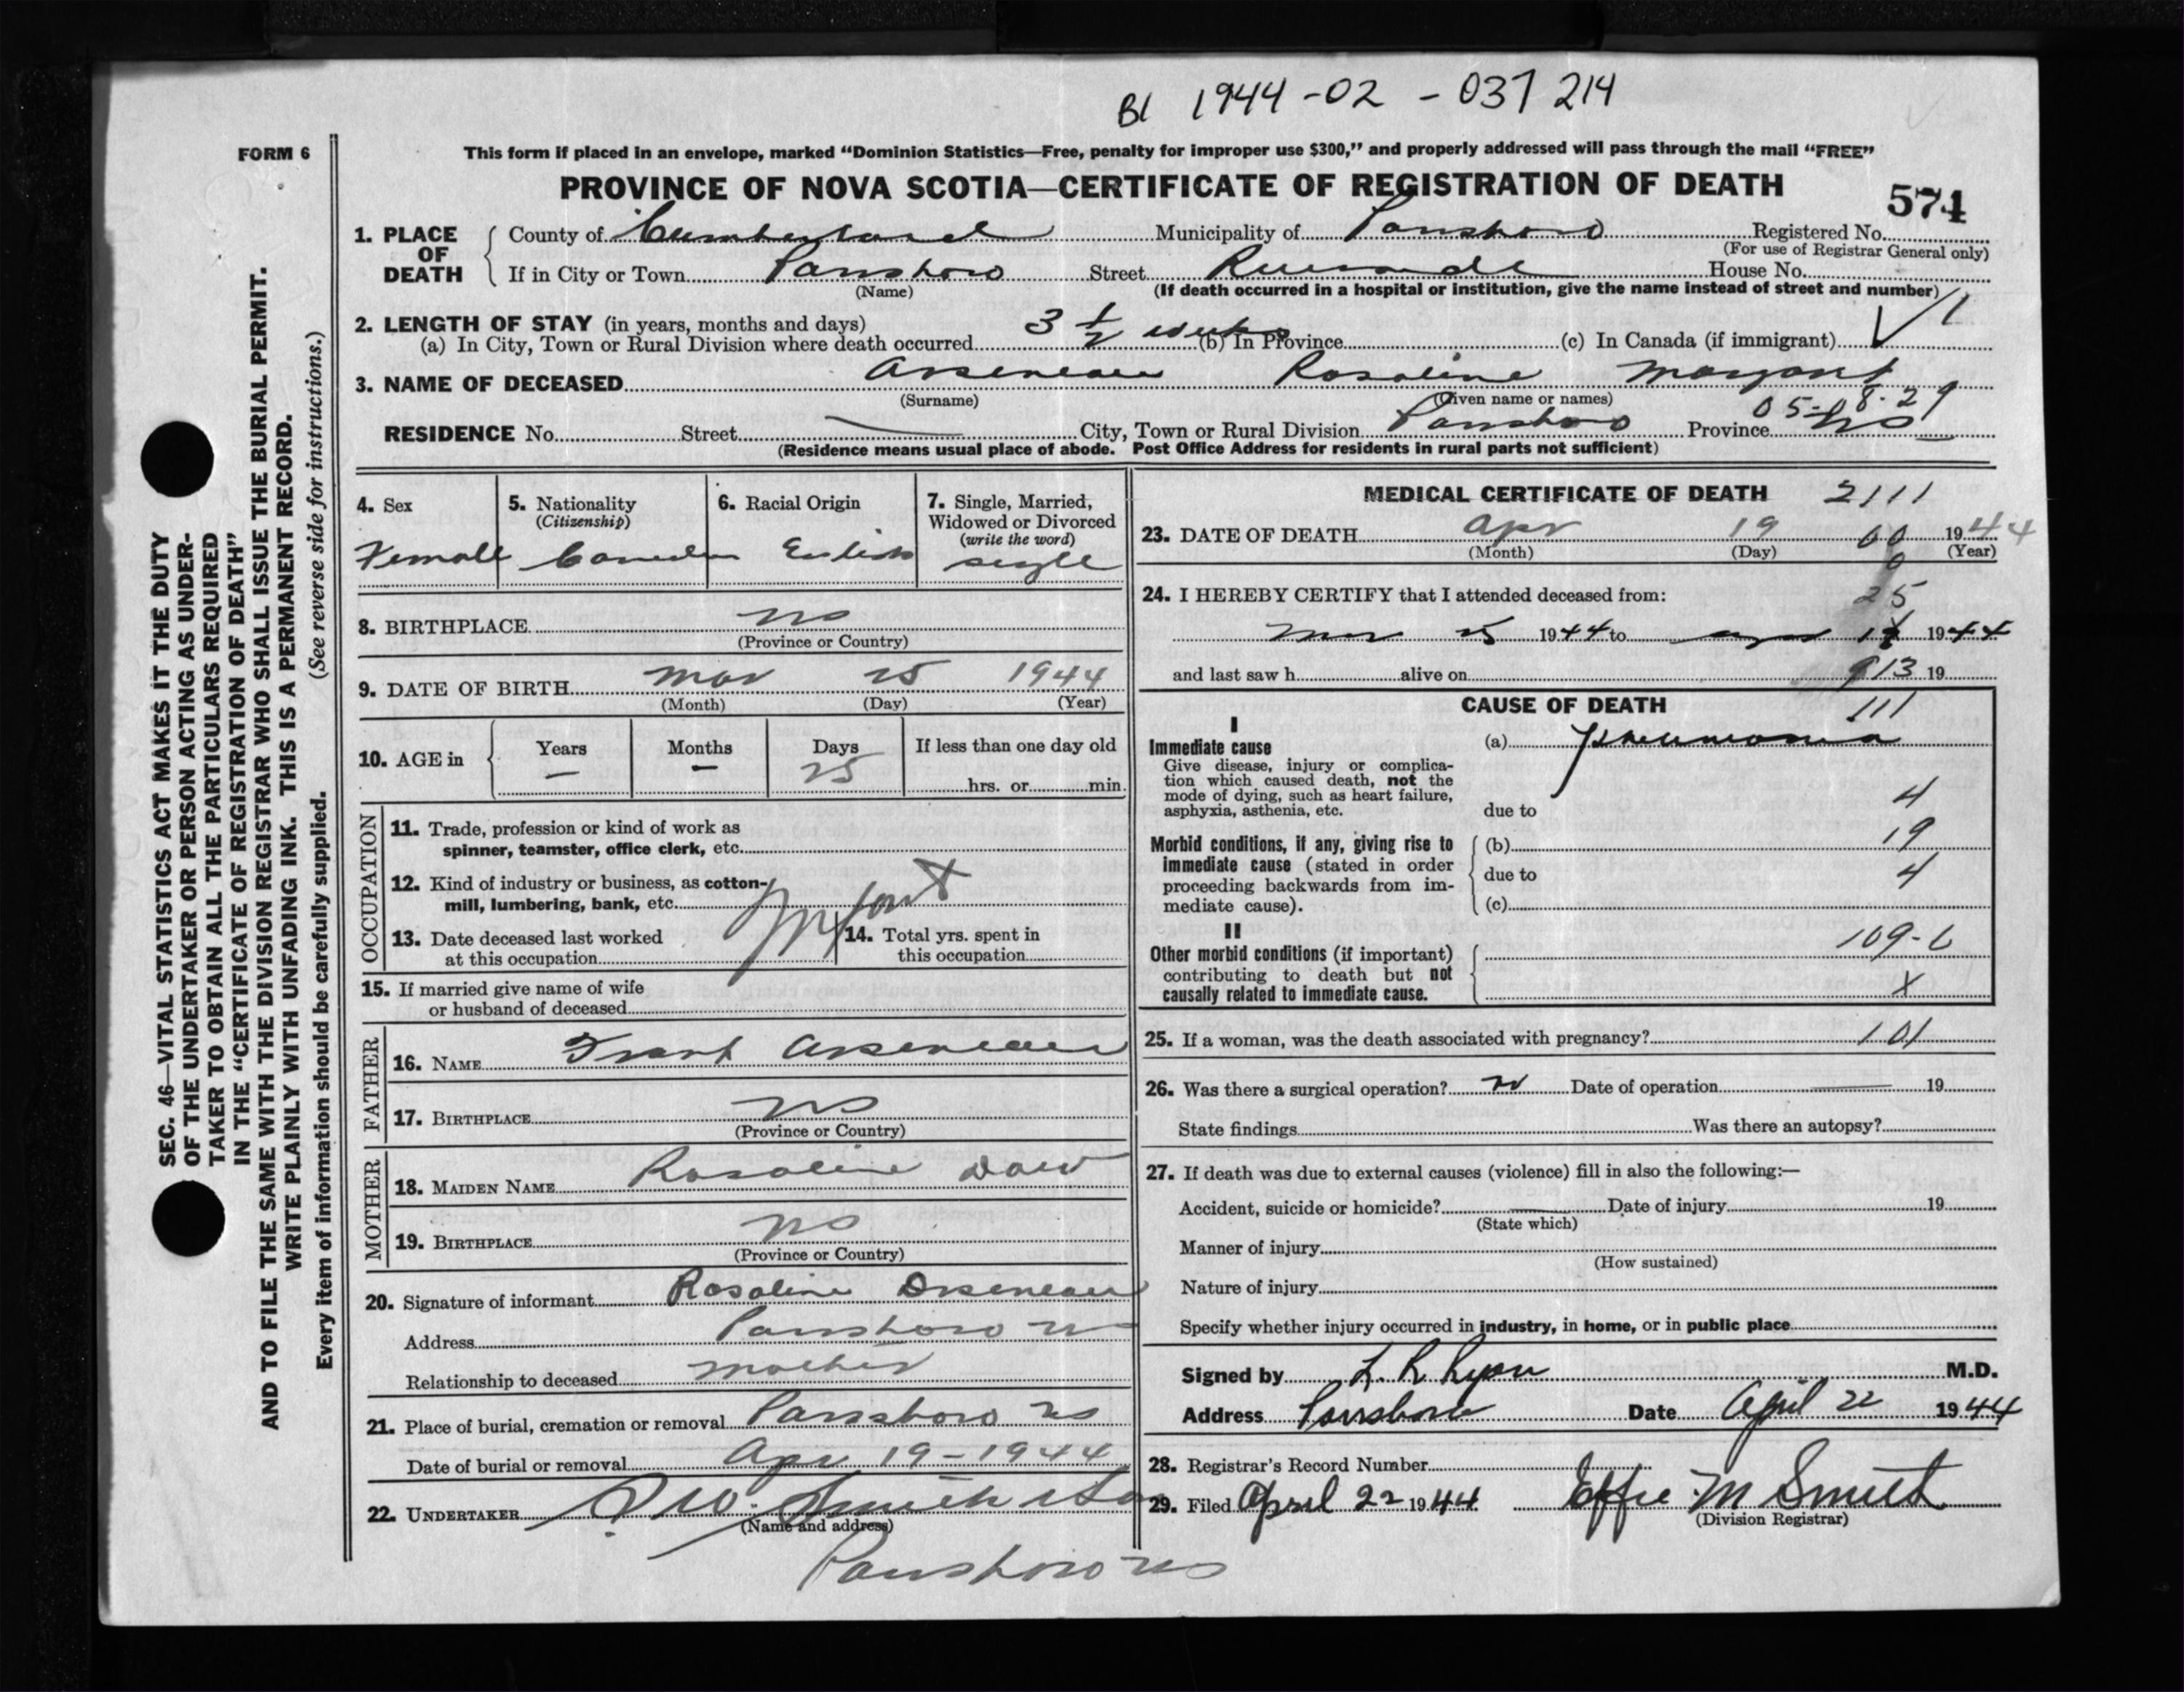 Bl 1944-02-037214
FORM 6
This form if placed in an envelope, marked “Dominion Statistics—Free, penalty for improper use $300,” and properly addressed will pass through the mail “FREE”
PROVINCE OF NOVA SCOTIA—CERTIFICATE OF REGISTRATION OF DEATH
574
1. PLACE OF DEATH { County of Cumberland Municipality of Parrsboro Registered No.
(For use of Registrar General only)
If in City or Town Parrsboro Street Riverside House No.
(Name) (If death occurred in a hospital or institution, give the name instead of street and number)
2. LENGTH OF STAY (in years, months and days)
(a) In City, Town or Rural Division where death occurred 3 ½ weeks (b) In Province (c) In Canada (if immigrant)
3. NAME OF DECEASED Arseneau Rosaline Margaret
(Surname) (Given name or names)
05-08-29
RESIDENCE No. Street City, Town or Rural Division Parrsboro Province NS
(Residence means usual place of abode. Post Office Address for residents in rural parts not sufficient)
4. Sex Female
5. Nationality (Citizenship) Canadian
6. Racial Origin English
7. Single, Married, Widowed or Divorced (write the word) single
8. BIRTHPLACE NS
(Province or Country)
9. DATE OF BIRTH Mar 25 1944
(Month) (Day) (Year)
10. AGE in { Years — Months — Days 25 If less than one day old
hrs. or min.
OCCUPATION
11. Trade, profession or kind of work as
spinner, teamster, office clerk, etc.
12. Kind of industry or business, as cotton-
mill, lumbering, bank, etc. Infant
13. Date deceased last worked
at this occupation
14. Total yrs. spent in
this occupation
15. If married give name of wife
or husband of deceased
FATHER
16. NAME Frank Arseneau
17. BIRTHPLACE NS
(Province or Country)
MOTHER
18. MAIDEN NAME Rosaline Dow
19. BIRTHPLACE NS
(Province or Country)
20. Signature of informant Rosaline Arseneau
Address Parrsboro NS
Relationship to deceased mother
21. Place of burial, cremation or removal Parrsboro NS
Date of burial or removal Apr 19-1944
22. UNDERTAKER W. Smith & Son
(Name and address)
Parrsboro NS
MEDICAL CERTIFICATE OF DEATH 2111
23. DATE OF DEATH Apr 19 1944
(Month) (Day) (Year)
00
24. I HEREBY CERTIFY that I attended deceased from:
25
Mar 25 1944 to Apr 1944
and last saw h alive on 19
913
CAUSE OF DEATH
111
I
Immediate cause
Give disease, injury or complica-
tion which caused death, not the
mode of dying, such as heart failure,
asphyxia, asthenia, etc.
(a) Pneumonia
due to
4
Morbid conditions, if any, giving rise to
immediate cause (stated in order
proceeding backwards from im-
mediate cause).
(b) 19
due to 4
(c)
II
Other morbid conditions (if important)
contributing to death but not
causally related to immediate cause.
109-6
X
25. If a woman, was the death associated with pregnancy? 101
26. Was there a surgical operation? no Date of operation 19
State findings Was there an autopsy?
27. If death was due to external causes (violence) fill in also the following:—
Accident, suicide or homicide? Date of injury 19
(State which)
Manner of injury
(How sustained)
Nature of injury
Specify whether injury occurred in industry, in home, or in public place
Signed by L. R. Ryan M.D.
Address Parrsboro Date April 22 1944
28. Registrar's Record Number
29. Filed April 22 1944 Effie M Smith
(Division Registrar)
SEC. 46—VITAL STATISTICS ACT MAKES IT THE DUTY
OF THE UNDERTAKER OR PERSON ACTING AS UNDER-
TAKER TO OBTAIN ALL THE PARTICULARS REQUIRED
IN THE “CERTIFICATE OF REGISTRATION OF DEATH”
AND TO FILE THE SAME WITH THE DIVISION REGISTRAR WHO SHALL ISSUE THE BURIAL PERMIT.
WRITE PLAINLY WITH UNFADING INK. THIS IS A PERMANENT RECORD.
Every item of information should be carefully supplied. (See reverse side for instructions.)